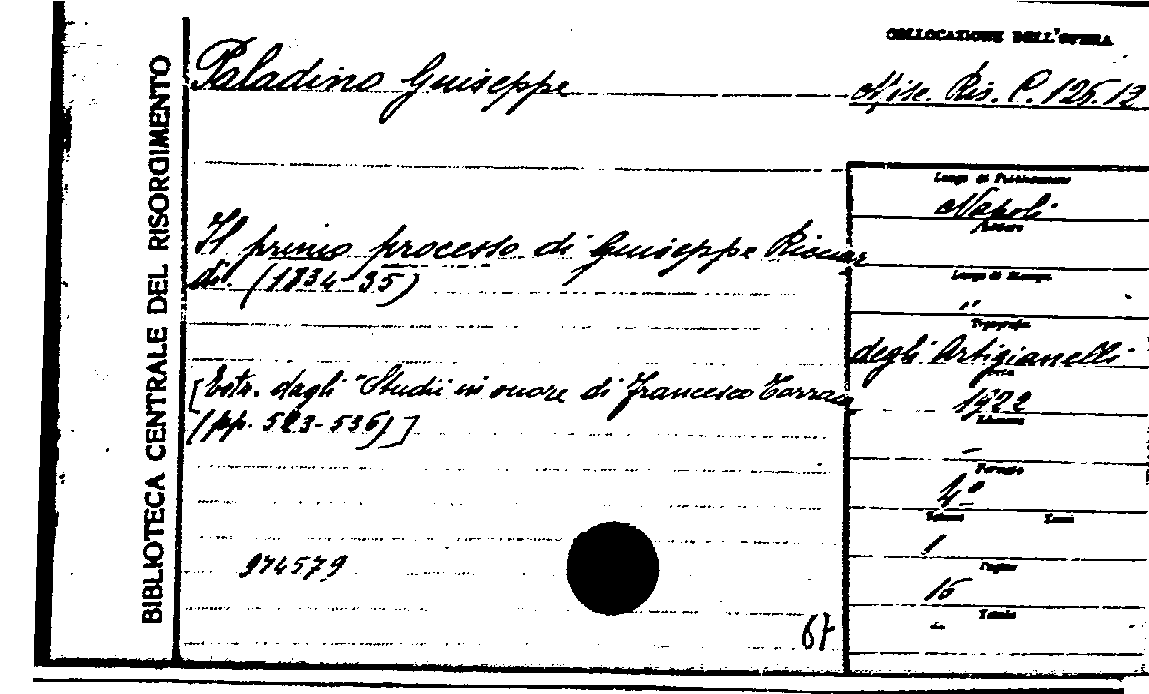 BIBLIOTECA CENTRALE DEL RISORGIMENTO
COLLOCAZIONE DELL'OPERA
Paladino Giuseppe
Misc. Ris. C. 126.12
Il primo processo di Giuseppe Ricciar
di. (1834-35)
[Estr. dagli "Studii in onore di Francesco Torraca
(pp. 523-536)]
974579
67
Luogo di Pubblicazione
Napoli
Luogo di Stampa
"
Tipografia
degli Artigianelli
1922
Edizione
–
Formato
4º
Volumi
1
Pagine
16
Tavole
–